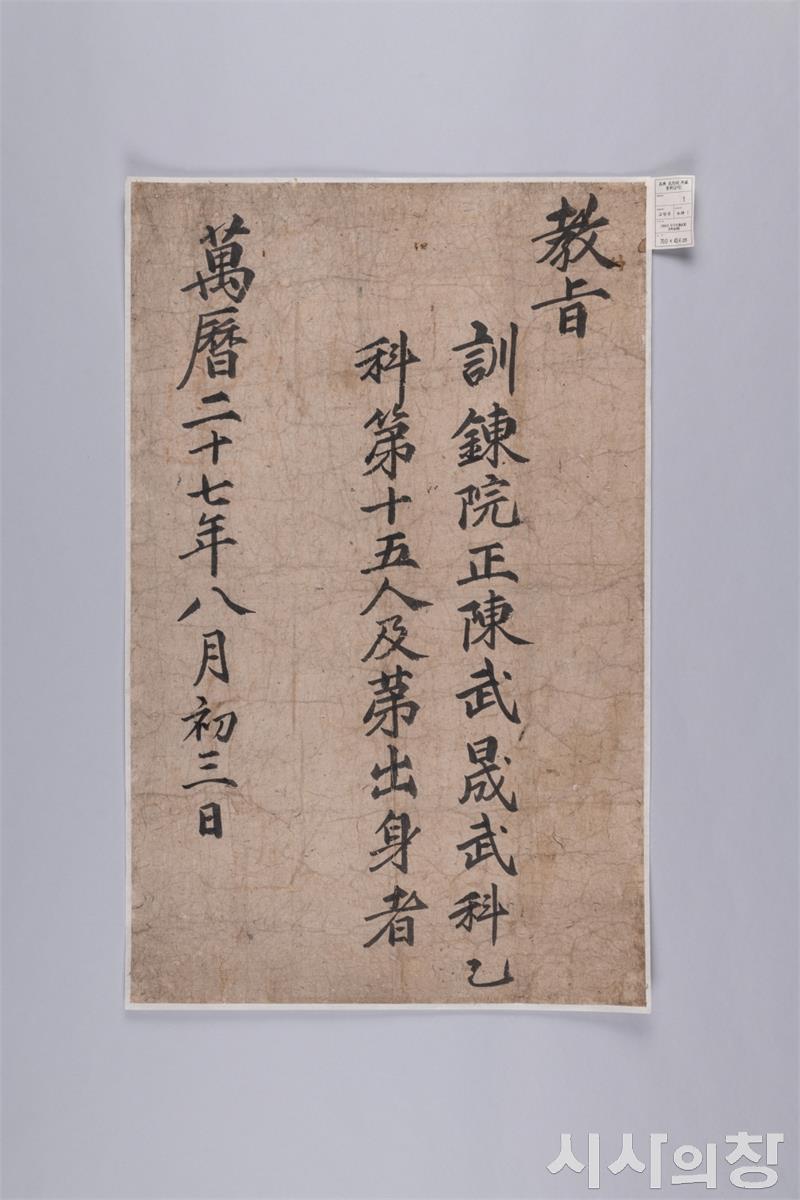 教旨
訓鍊院正陳武晟武科乙
科第十五人及第出身者
萬曆二十七年八月初三日
1
시사의창